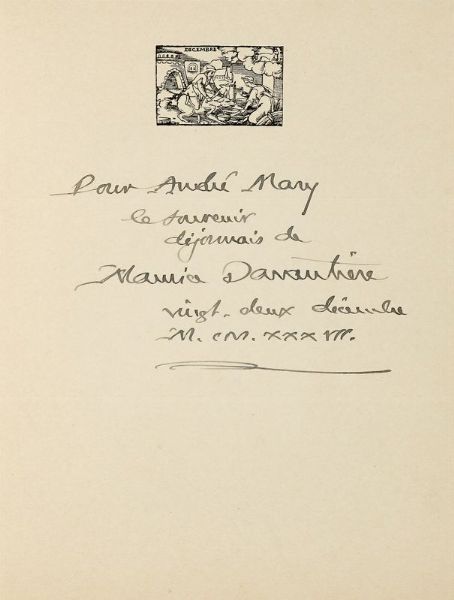 DECEMBRE
Pour André Mary
le souvenir
dijonnais de
Maurice Davantière
vingt-deux décembre
M. CM. XXX VII.